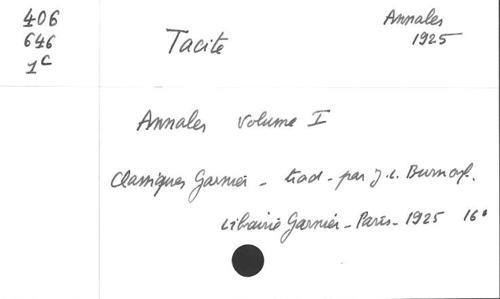 406
646
1C
Tacite
Annales
1925
Annales volume I
Classiques Garnier - trad - par J. L. Burnouf.
Librairie Garnier - Paris - 1925 16°